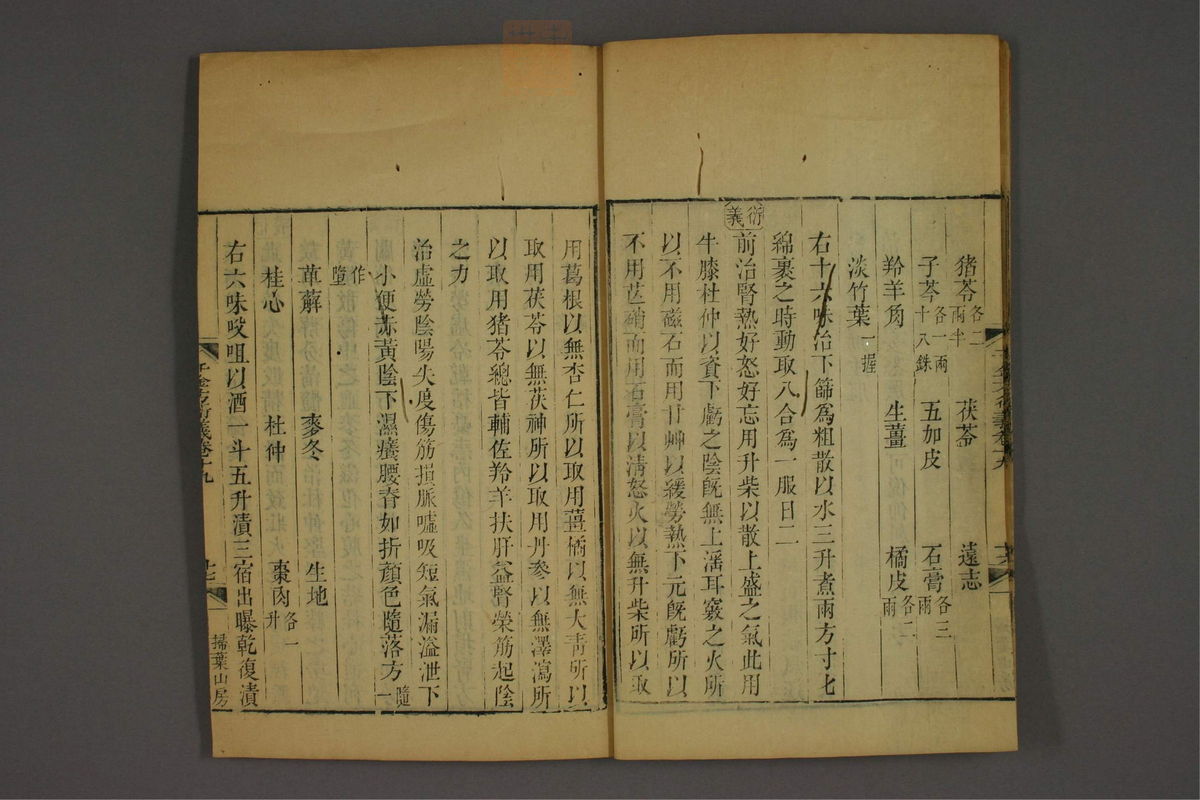 猪苓各二兩半 茯苓 遠志
子芩各一兩十八銖 五加皮 石膏各三兩
羚羊角 生薑 橘皮各二兩
淡竹葉一握
右十六味治下篩為粗散以水三升煮兩方寸匕
綿裹之時動取八合為一服日二
衍義
前治腎熱好怒好忘用升柴以散上盛之氣此用
牛膝杜仲以資下虧之陰旣無上滛耳竅之火所
以不用磁石而用甘艸以緩勞熱下元旣虧所以
不用芒硝而用石膏以清怒火以無升柴所以取
用葛根以無杏仁所以取用薑橘以無大青所以
取用茯苓以無茯神所以取用丹參以無澤瀉所
以取用猪苓總皆輔佐羚羊扶肝益腎榮筋起陰
之力
治虛勞陰陽失度傷筋損脈噓吸短氣漏溢泄下
小便赤黃陰下濕癢腰脊如折顏色隨落方隨一
作墮
萆薢 麥冬 生地
桂心 杜仲 棗肉各一升
右六味㕮咀以酒一斗五升漬三宿出曝乾復漬
千金方衍義卷十九
十七
掃葉山房